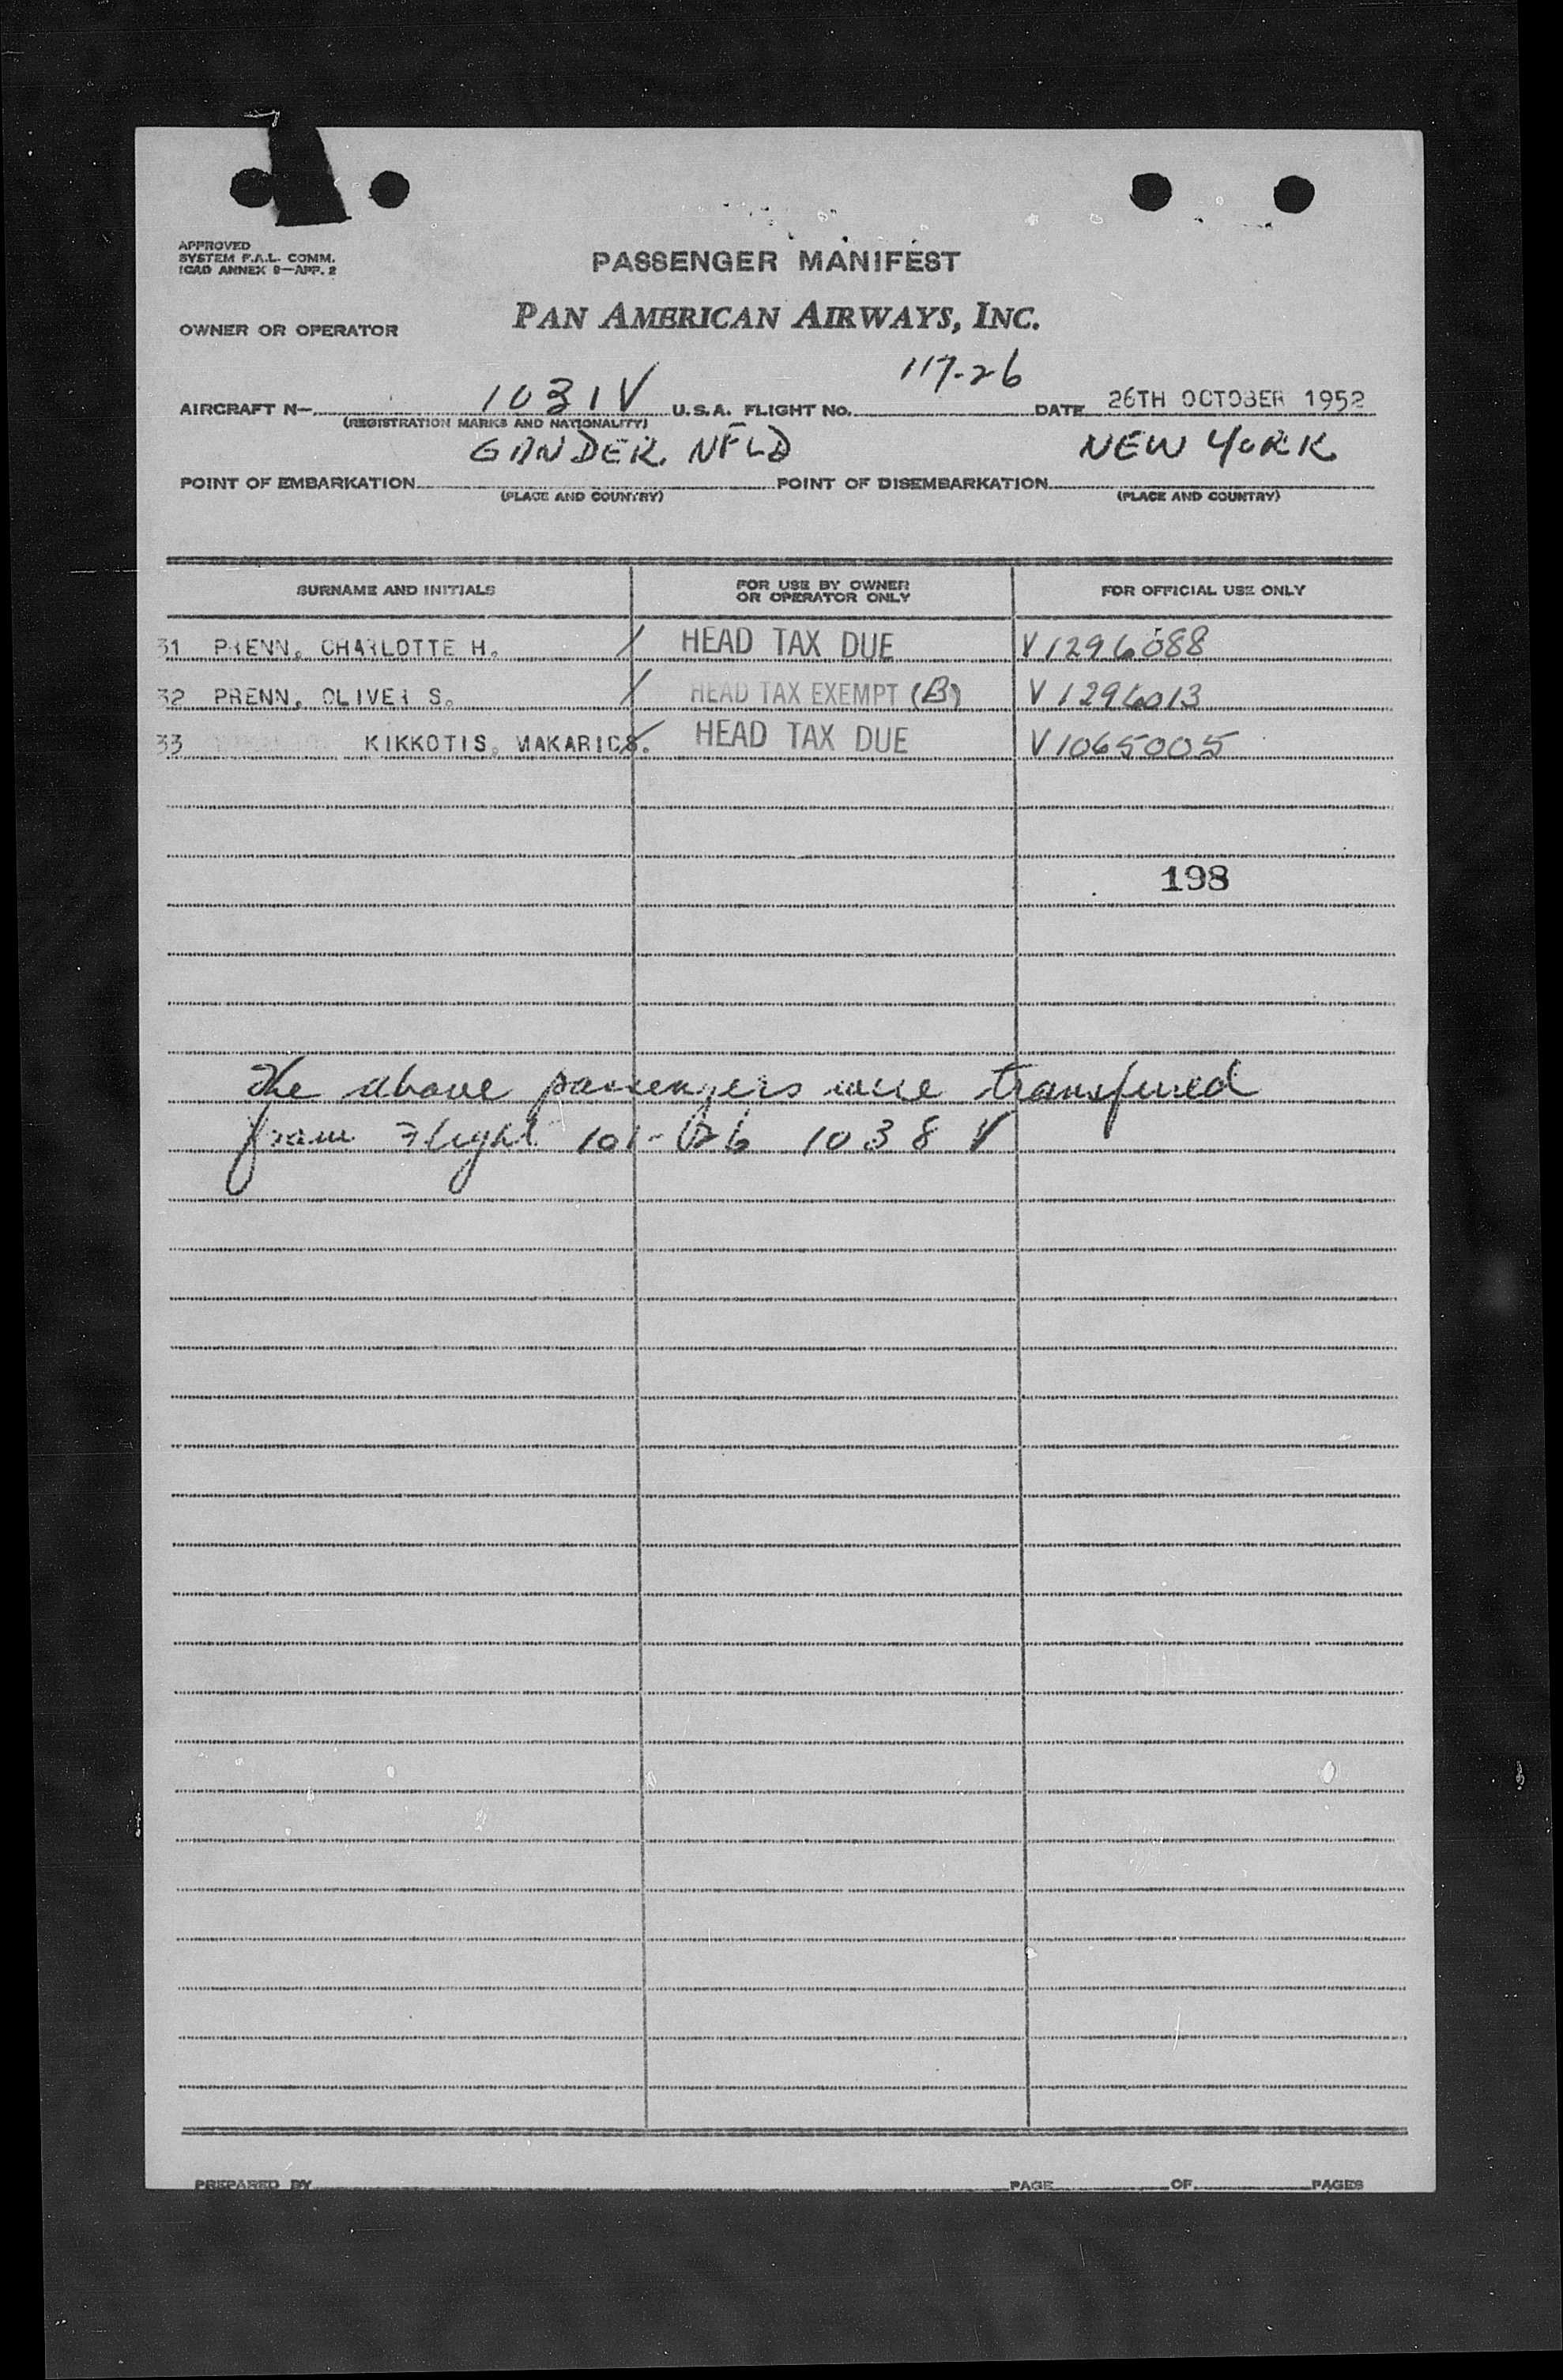 APPROVED
SYSTEM F.A.L. COMM.
ICAO ANNEX 9—APP. 2
PASSENGER MANIFEST
OWNER OR OPERATOR PAN AMERICAN AIRWAYS, INC.
117-26
AIRCRAFT N— 1031V U.S.A. FLIGHT NO. DATE 26TH OCTOBER 1952
(REGISTRATION MARKS AND NATIONALITY)
GANDER. NFLD NEW YORK
POINT OF EMBARKATION POINT OF DISEMBARKATION
(PLACE AND COUNTRY) (PLACE AND COUNTRY)
SURNAME AND INITIALS FOR USE BY OWNER OR OPERATOR ONLY FOR OFFICIAL USE ONLY
31 PRENN, CHARLOTTE H. / HEAD TAX DUE V1296088
32 PRENN, OLIVER S. / HEAD TAX EXEMPT (B) V1296013
33 KIKKOTIS, MAKARIOS. HEAD TAX DUE V1065005
198
The above passengers were transfured
from Flight 101-26 1038 V
PREPARED BY PAGE OF PAGES